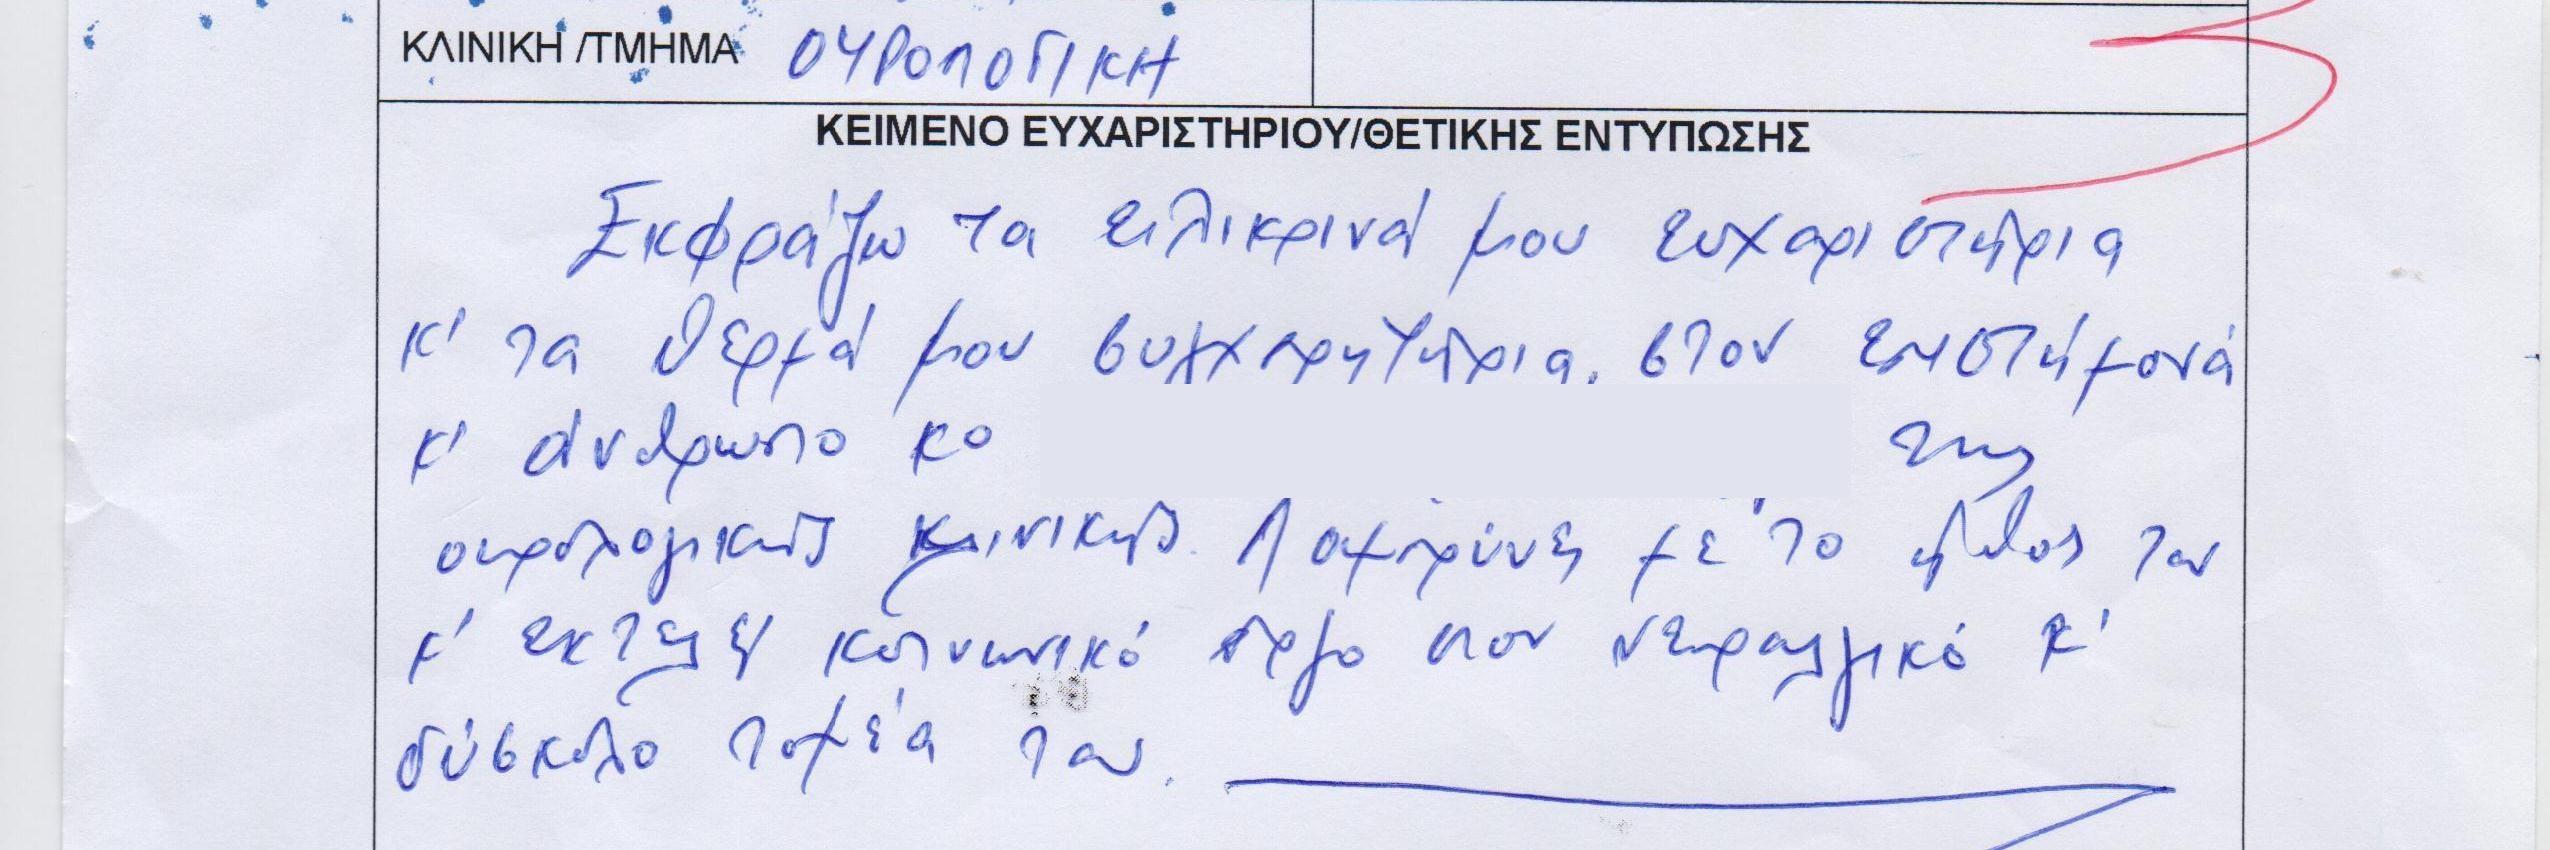 ΚΛΙΝΙΚΗ /ΤΜΗΜΑ ΟΥΡΟΛΟΓΙΚΗ
ΚΕΙΜΕΝΟ ΕΥΧΑΡΙΣΤΗΡΙΟΥ/ΘΕΤΙΚΗΣ ΕΝΤΥΠΩΣΗΣ
Εκφράζω τα ειλικρινά μου ευχαριστήρια
κ' τα θερμά μου συγχαρητήρια. στον επιστήμονά
κ' άνθρωπο κο της
ουρολογικής κλινικής. Λαμπρύνει με το ήθος του
κ' εκτελεί κοινωνικό έργο στον νευραλγικό κ'
δύσκολο τομέα του.